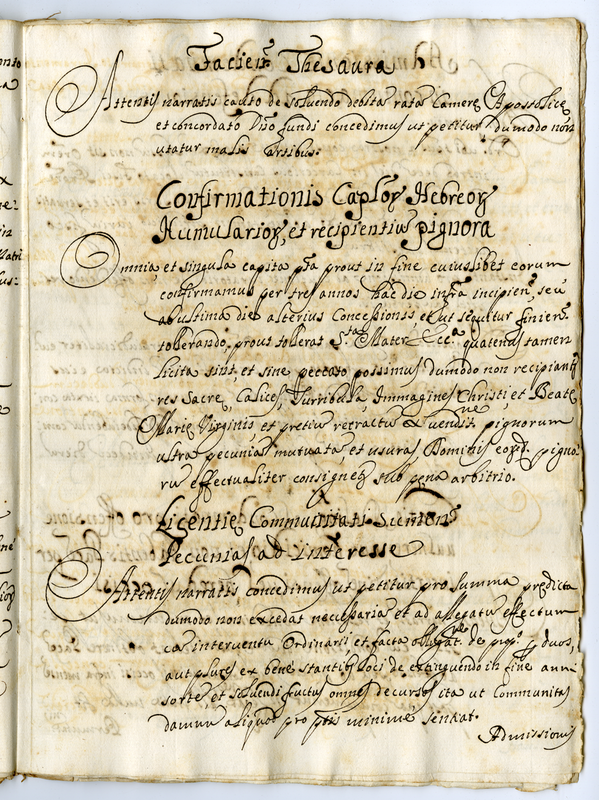 Facien. Thesaura
Attentis narratis cauto de solvendo debita rata Camerę Apostolicę
et concordato Dño fundi concedimus ut petitur dummodo non
utatur malis Artibus.
Confirmationis Caplor. Hebreor.
Numularior. et recipientiu pignora
Omnia et singula capita pta prout in fine cuiuslibet eorum
confirmamus per tres annos hac die infra incipien. seu
ab ultima die alterius Concessionis et ut sequitur finien.
tollerando, prout tollerat Sta. Mater Ecca. quatenus tamen
licita sint, et sine peccato possimus dummodo non recipiant
res Sacrę, Calices, Turribula, Immagines Christi, et Beatę
Marię Virginis et pretiu retractus ex venditne pignorum
ultra pecunias mutuatas, et usuras Dominis eord. pigno.
ru effectualiter consignet. sub pena arbitrio.
Licentię Communitati Sumen.
Pecunias ad interesse
Attentis narratis concedimus ut petitur pro summa predicta
dummodo non excedat necessarias et ad allegatus effectum
cas interventu Ordinarii et facta obligatne de prop. p duos,
aut plures ex bene stantibs loci de extinguendo in fine anni
sorte, et solvendi fructus omnes decursos ita ut Communitas
damnu aliquod pro ptis minime sentiat.
Admissionis